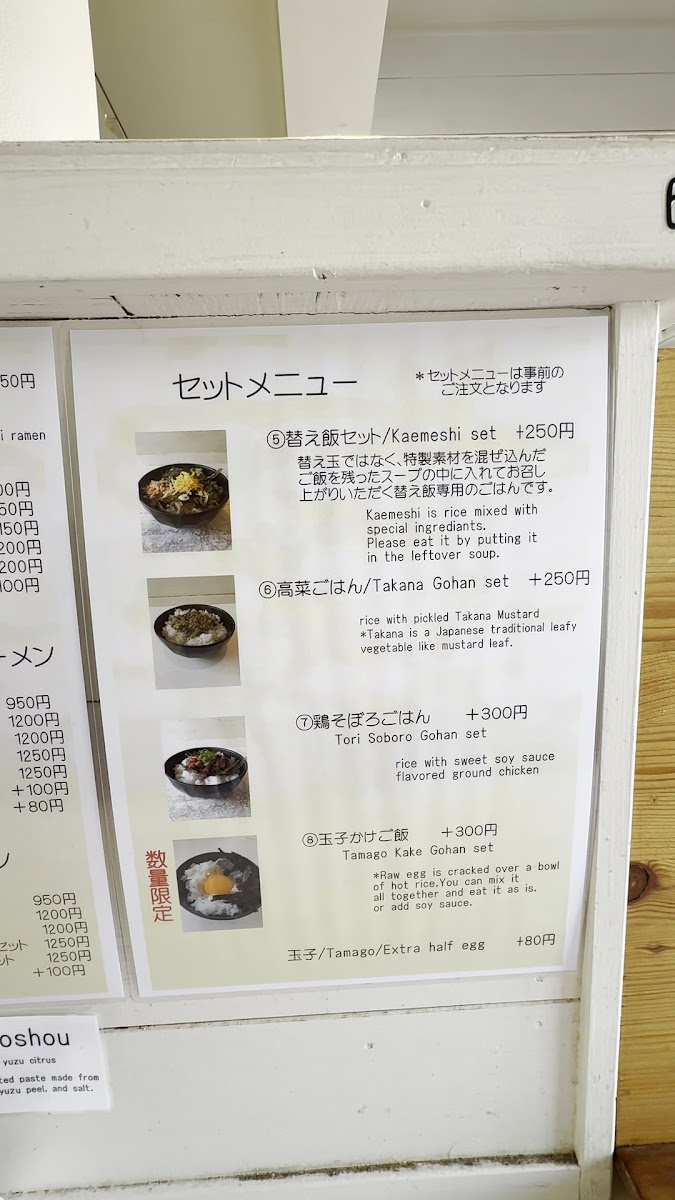 50円
i ramen
00円
50円
150円
200円
200円
100円
ーメン
950円
1200円
1200円
1250円
1250円
+100円
+80円
950円
1200円
1200円
セット 1250円
ット 1250円
+100円
oshou
yuzu citrus
ted paste made from
yuzu peel, and salt.
セットメニュー
*セットメニューは事前の
ご注文となります
⑤替え飯セット/Kaemeshi set +250円
替え玉ではなく、特製素材を混ぜ込んだ
ご飯を残ったスープの中に入れてお召し
上がりいただく替え飯専用のごはんです。
Kaemeshi is rice mixed with
special ingrediants.
Please eat it by putting it
in the leftover soup.
⑥高菜ごはん/Takana Gohan set +250円
rice with pickled Takana Mustard
*Takana is a Japanese traditional leafy
vegetable like mustard leaf.
⑦鶏そぼろごはん +300円
Tori Soboro Gohan set
rice with sweet soy sauce
flavored ground chicken
⑧玉子かけご飯 +300円
Tamago Kake Gohan set
数量限定
*Raw egg is cracked over a bowl
of hot rice.You can mix it
all together and eat it as is,
or add soy sauce.
玉子/Tamago/Extra half egg +80円